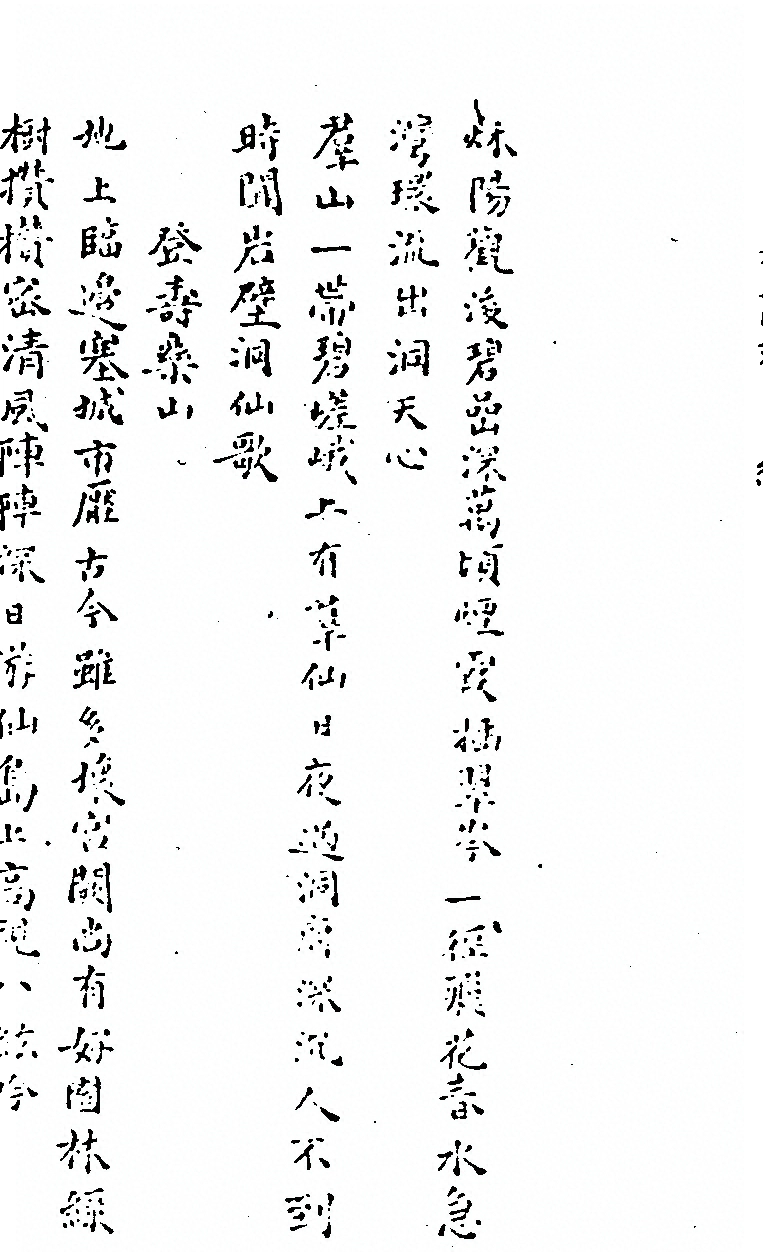 陽觀後碧岩深萬頃煙霞插翠岑一徑殘花春水急
灣環流出洞天心
羣山一帶碧嵯峨上有羣仙日夜過洞府深沉人不到
時聞岩壁洞仙歌
登壽樂山
地上臨邊塞城市壓古今雖多壞宮闕尚有好園林綠
樹攢攢密清風陣陣深日游仙島上高視八紘吟